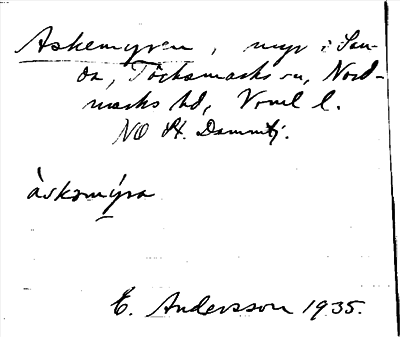 Askemyren, myr i San-
da, Töcksmarks sn, Nord-
marks hd, Vrml l.
NO St. Dammtj.
àskamýra
E. Andersson 1935.